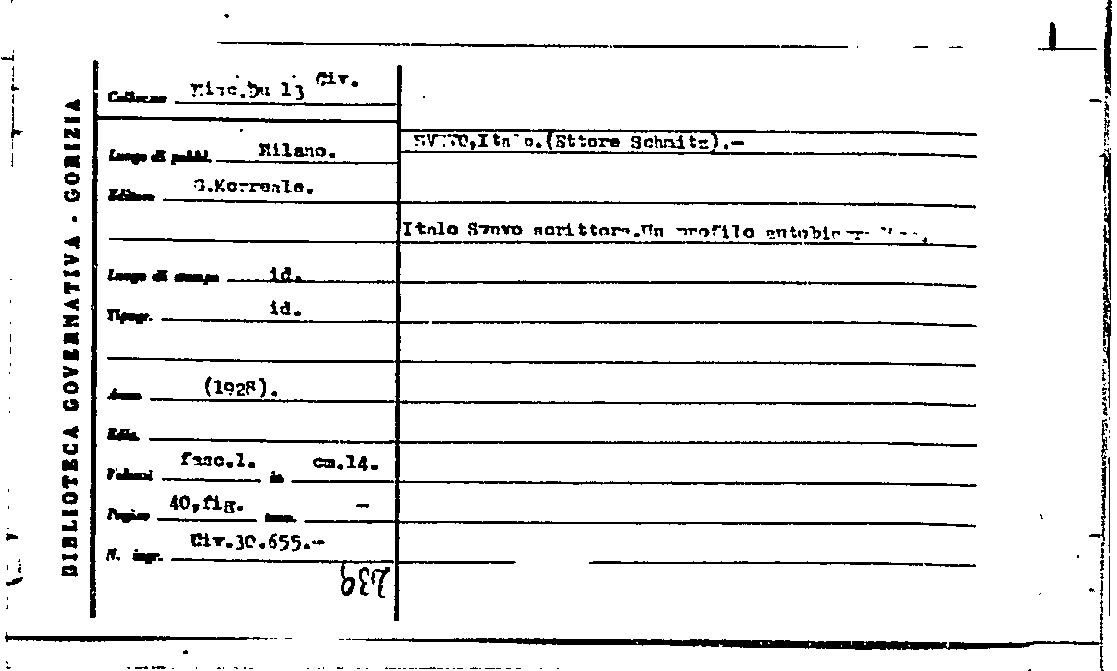 BIBLIOTECA GOVERNATIVA - GORIZIA
Collocaz. Misc.Bu 13 Civ.
Luogo di pubbl. Milano.
SVEVO,Italo.(Ettore Schmitz).-
Editore G.Morreale.
Italo Svevo scrittore.Un profilo
Luogo di stampa id.
Tipogr. id.
Anno (1928).
Ediz.
Volumi fasc.1. in cm.14.
Pagine 40,fig. -
N. ingr. Civ.30.655.-
239